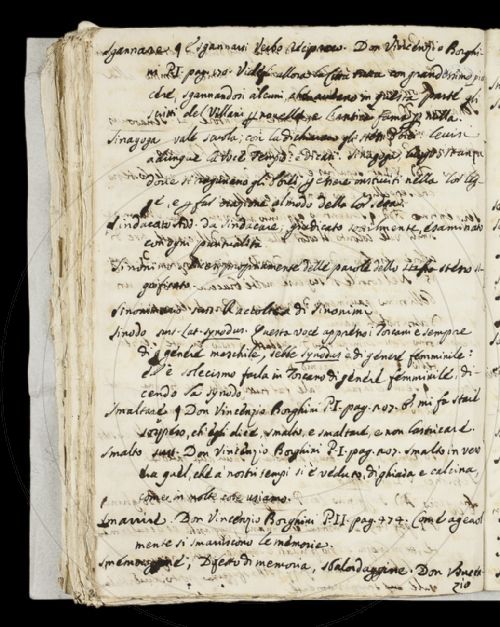 Sgannare. ¶ E Sgannarsi Verbo Reciproco. Don Vincenzio Borghi-
ni P.I. pag. 170. Videsi allora la Città tutta con grandissimo pia-
cere, sgannandosi alcuni, che aveano in questa parte gli
scritti del Villani p novelle, e l'antica fama p nulla.
Sinagoga vale scuola, così la dichiarano gli stessi Ebrei
adunque la voce Tempo: e dicasi. Sinagoga
dove si raguneno gli Ebrei p essere instruiti nella lor leg-
ge, e p far orazione al modo della lor setta.
Sindacato Add. da Sindacare, giudicato, esaminato
con ogni puntualità.
Sinonimo propriamente delle parole dello stesso stesso si-
gnificato.
Sinonimario sust. Raccolta di Sinonimi
Sinodo sust. Lat. Synodus. Questa voce appresso i Toscani è sempre
di genere maschile, sebbe synodus è di genere femminile:
ed è solecismo farla in Toscano di genere femminile, di-
cendo la Synodo
Smaltare. ¶ Don Vincenzio Borghini P.I. pag. 207. E mi fa star
sospeso, ch'egli dice, smalto, e smaltare, e non lastricare.
Smalto sust. Don Vincenzio Borghini P.I. pag. 207. smalto in vero
era quel, che a nostri tempi si è veduto, di ghiaia e calcina,
come in molte cose usiamo.
Smarrire. Don Vincenzio Borghini P.II. pag. 474. Com'è agevol
mente si smarriscono le memorie.
Smemoraggine, Difetto di memoria, sbalordaggine. Don Vincen
zio